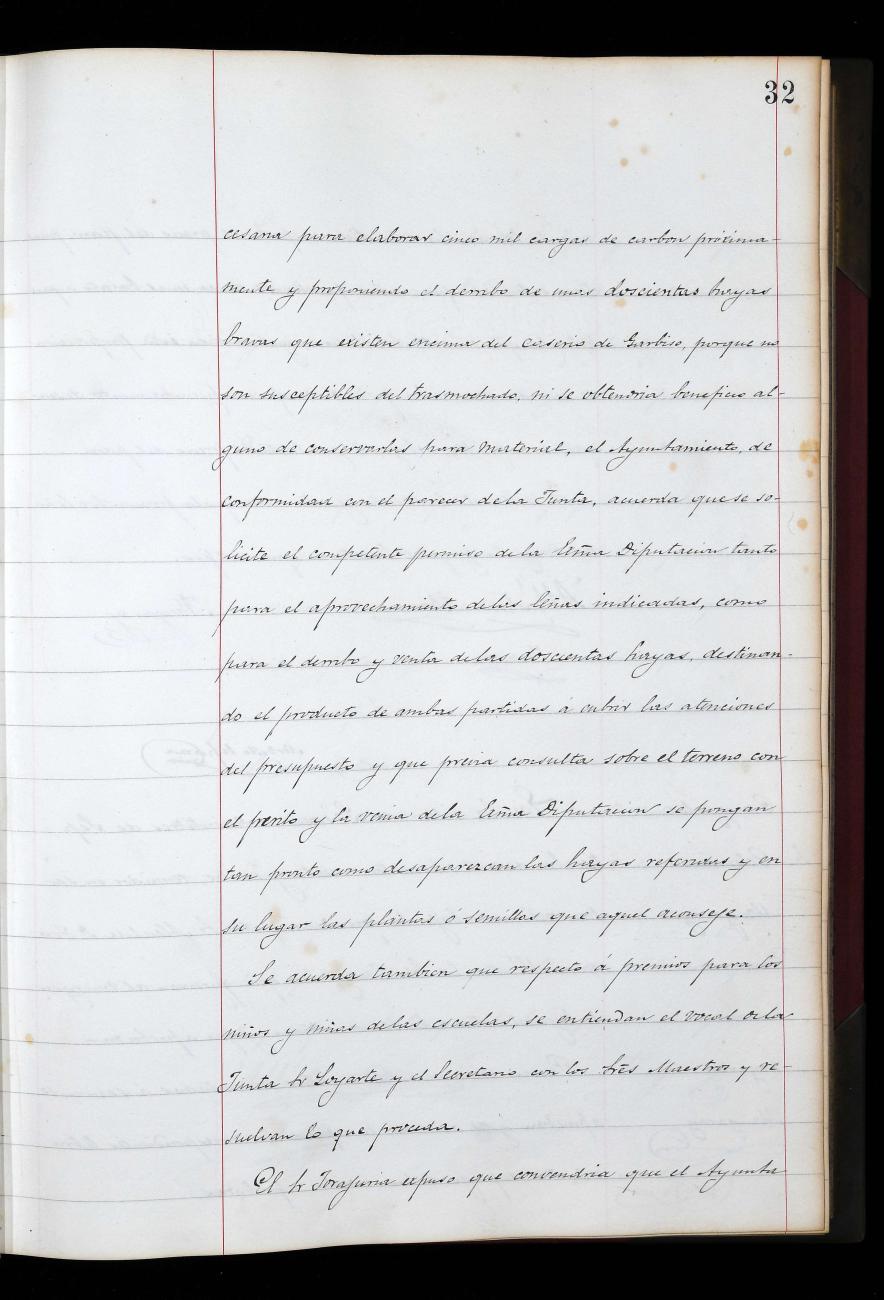 32
cesaria para elaborar cinco mil cargas de carbon próxima-
mente y proponiendo el derribo de unas doscientas hayas
bravas que existen encima del caserio de Garbiso, porque no
son susceptibles del trasmochado, ni se obtendria beneficio al-
guno de conservarlas para material, el Ayuntamiento, de
conformidad con el parecer de la Junta, acuerda que se so-
licite el competente permiso de la Exma Diputacion tanto
para el aprovechamiento de las leñas indicadas, como
para el derribo y venta de las doscientas hayas, destinan-
do el producto de ambas partidas á cubrir las atenciones
del presupuesto y que previa consulta sobre el terreno con
el perito y la venia de la Exma Diputacion se pongan
tan pronto como desaparezcan las hayas referidas y en
su lugar las plantas ó semillas que aquel aconseje.
Se acuerda tambien que respecto á premios para los
niños y niñas de las escuelas, se entiendan el vocal de la
Junta Sr Loyarte y el Secretario con los Sres Maestros y re-
suelvan lo que proceda.
El Sr expuso que convendria que el Ayunta